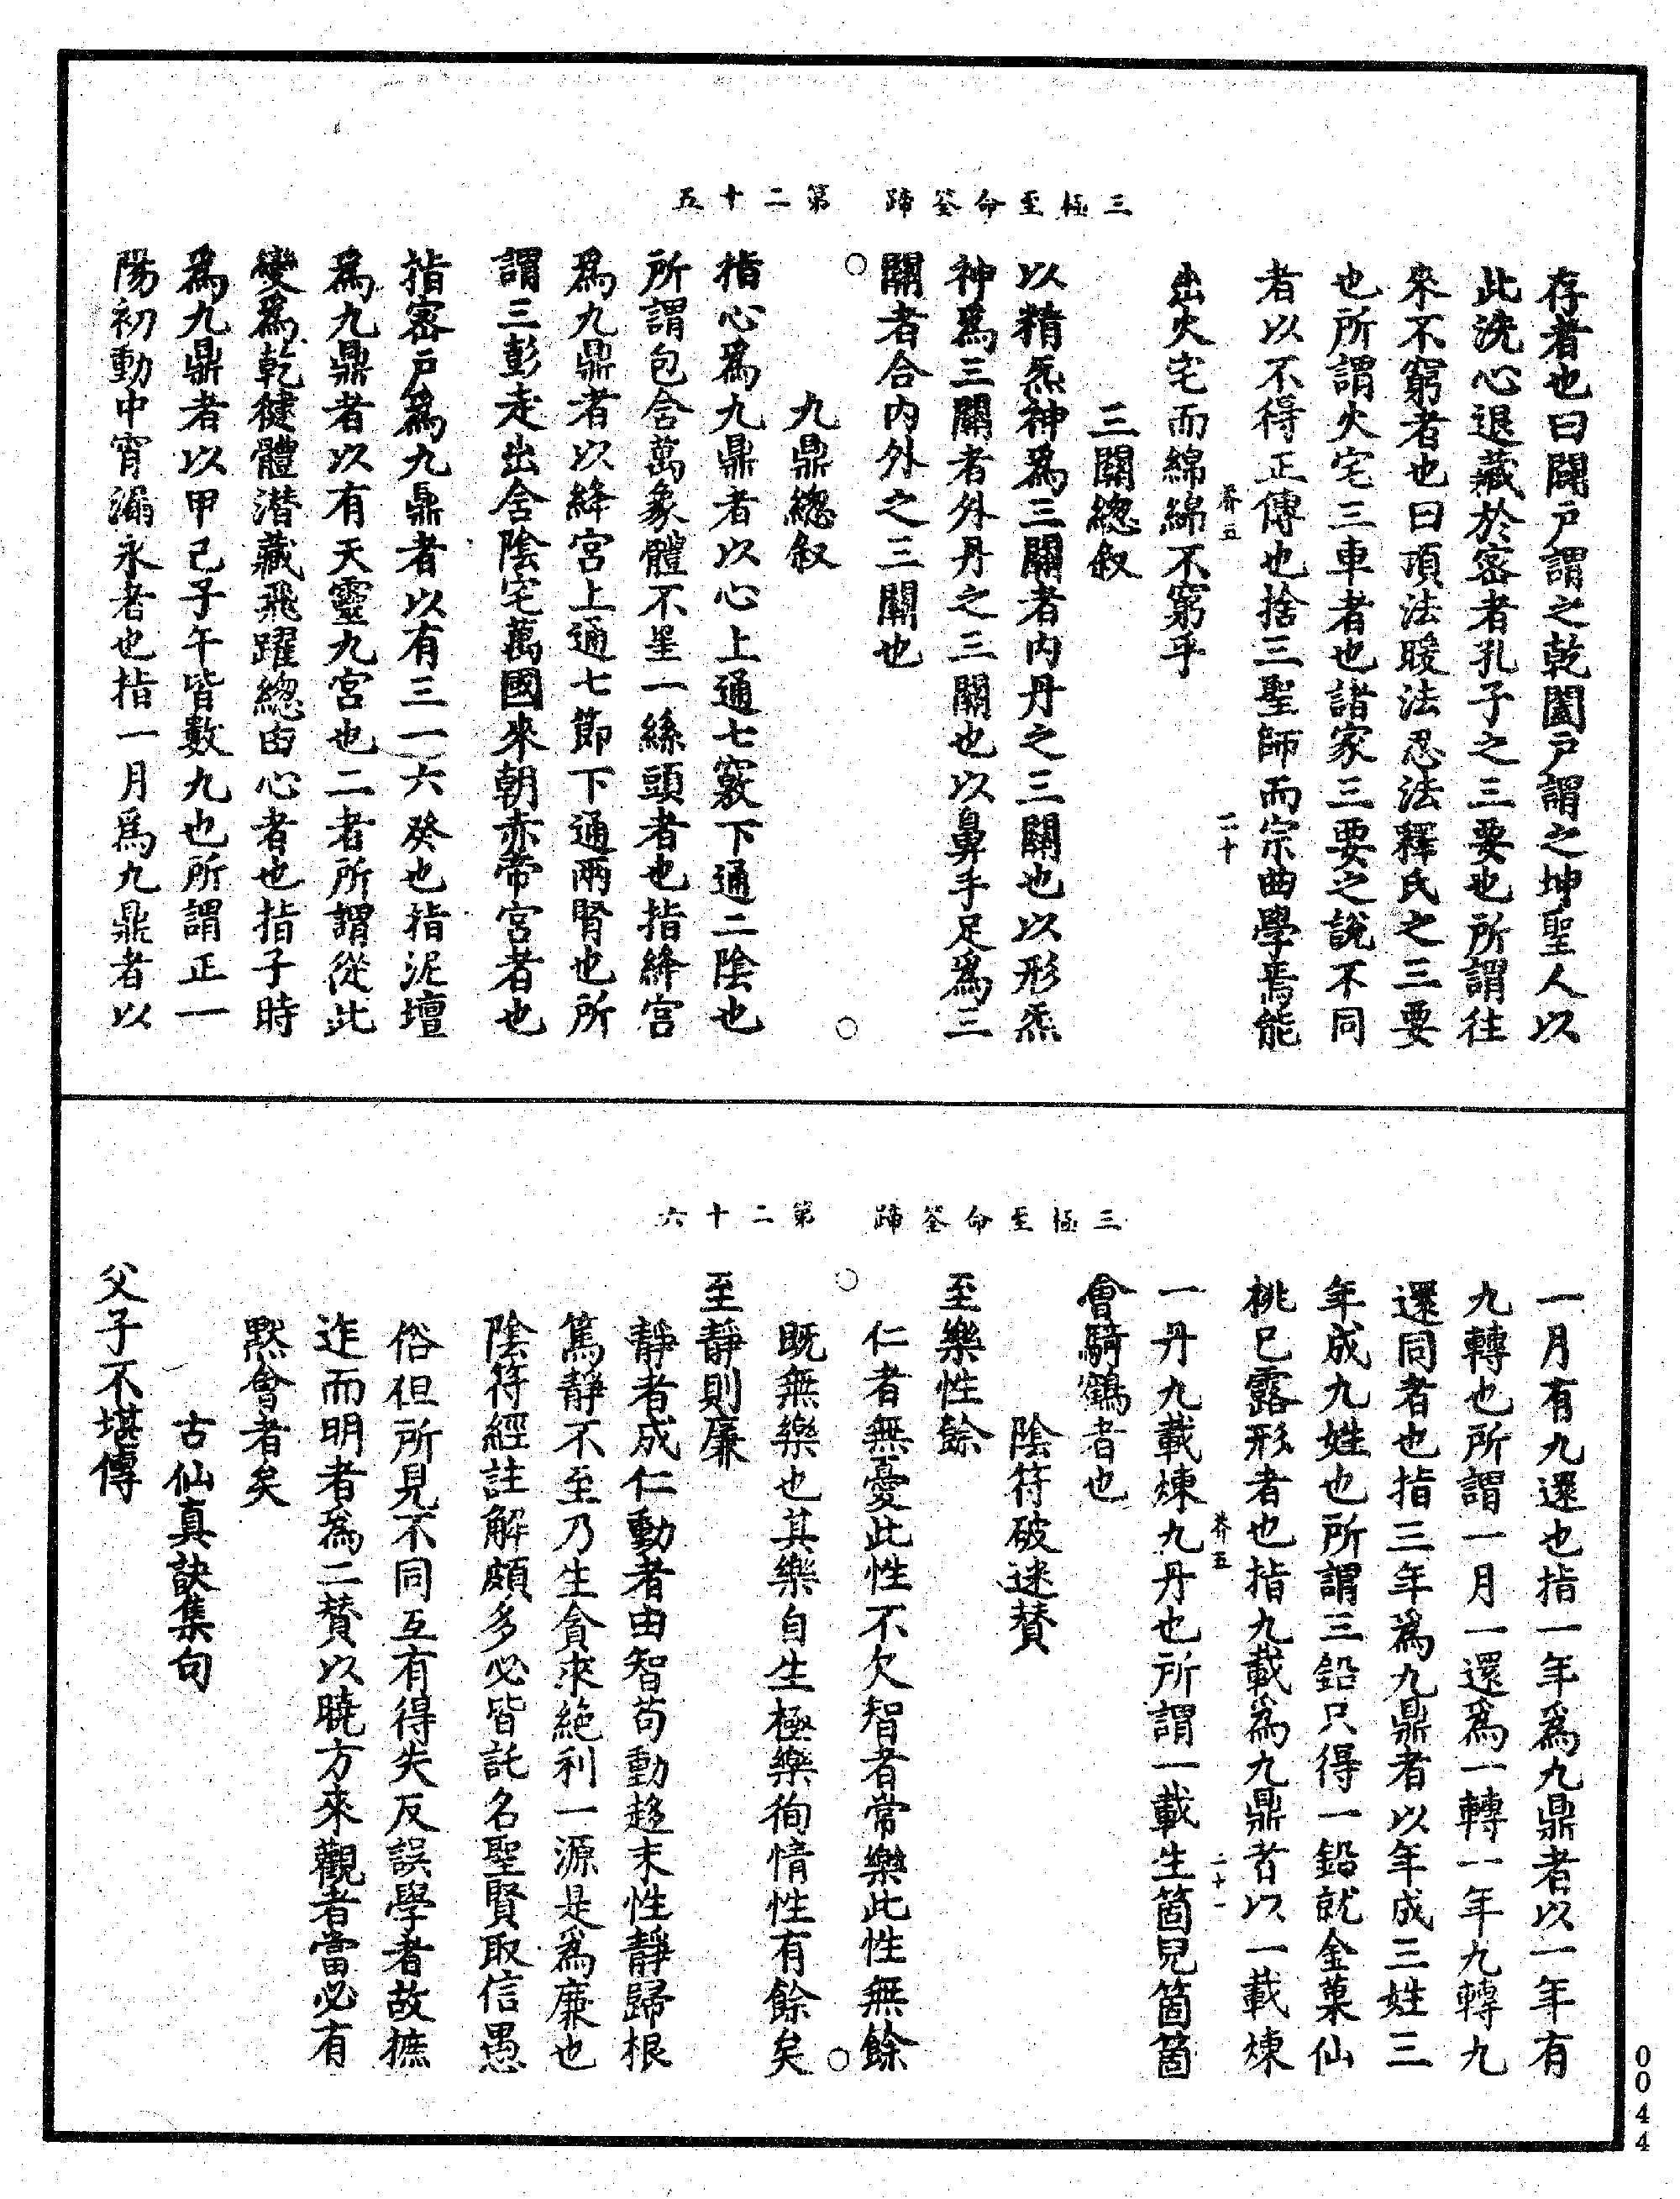 三極至命筌蹄 第二十五
存著也曰闢戶謂之乾闔戶謂之坤聖人以
此洗心退藏於密者孔子之三要也所謂往
來不窮者也曰頂法暖法忍法釋氏之三要
也所謂火宅三車者也諸家三要之說不同
者以不得正傳也捨三聖師而宗曲學焉能
芥五 二十
出火宅而綿綿不窮乎
三關總叙
以精炁神為三關者內丹之三關也以形炁
神為三關者外丹之三關也以鼻手足為三
關者合內外之三關也
九鼎總叙
指心為九鼎者以心上通七竅下通二陰也
所謂包含萬象體不星一絲頭者也指絳宮
為九鼎者以絳宮上通七節下通兩腎也所
謂三彭走出舍陰宅萬國來朝赤帝宮者也
指密戶為九鼎者以有三一六癸也指泥壇
為九鼎者以有天靈九宮也二者所謂從此
變為乾健體潛藏飛躍總由心者也指子時
為九鼎者以甲己子午皆數九也所謂正一
陽初動中宵漏永者也指一月為九鼎者以
三極至命筌蹄 第二十六
一月有九還也指一年為九鼎者以一年有
九轉也所謂一月一還為一轉一年九轉九
還同者也指三年為九鼎者以年成三姓三
年成九姓也所謂三鉛只得一鉛就金菓仙
桃已露形者也指九載為九鼎者以一載煉
芥五 二十一
一丹九載煉九丹也所謂一載生箇兒箇箇
會騎鶴者也
陰符破迷贊
至樂性餘
仁者無憂此性不欠智者常樂此性無餘
既無樂也其樂自生極樂徇情性有餘矣
至靜則廉
靜者成仁動者由智苟動趍末性靜歸根
篤靜不至乃生貪求絕利一源是為廉也
陰符經註解頗多必皆託名聖賢取信愚
俗但所見不同互有得失反誤學者故摭
迮而明者為二贊以曉方來觀者當必有
黙會者矣
古仙真訣集句
父子不堪傳
0044